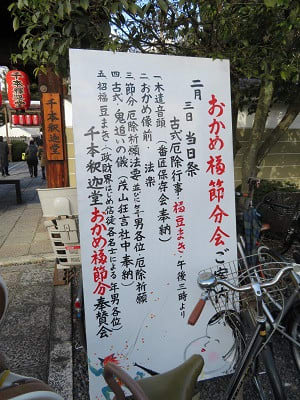 おかめ福節分会ご案内
二月三日 当日祭
古式厄除行事・福豆まき・午後三時より
一木遣音頭 (番匠保存会奉納)
二おかめ像前 法楽
三節分 厄除祈願法要並びに年男各位 厄除祈願
四古式・鬼追いの儀 (茂山狂言社中奉納)
五招福豆まき (政財界はじめ信徒各名士による年男各位)
千本釈迦堂 おかめ福節分奉賛会
千本釈迦堂